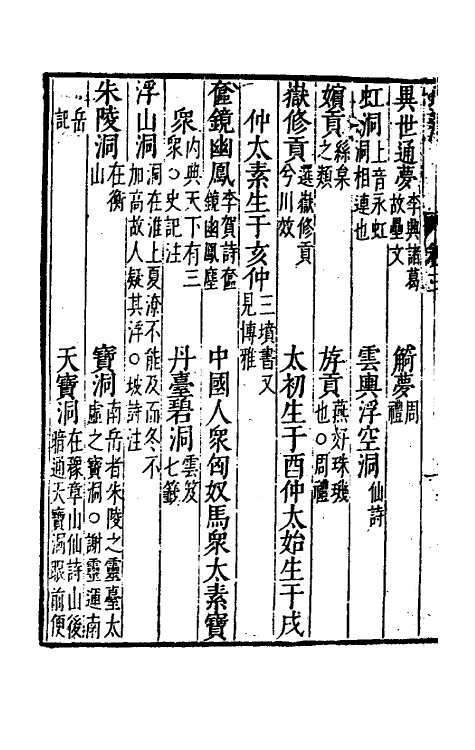 異世通夢李興諸葛故壘文　觭夢周禮
虹洞上音永虹洞相連也　雲輿浮空洞仙詩
嬪貢絲枲之類　斿貢燕好珠璣也○周禮
嶽修貢選嶽修貢兮川效　太初生于酉仲太始生于戌
仲太素生于亥仲三墳書又見博雅
奩鏡幽鳳李賀詩奩鏡幽鳳塵　中國人衆匈奴馬衆太素寶
衆內典天下有三衆○史記注　丹臺碧洞雲笈七籤
浮山洞洞在淮上夏潦不能及而冬不加高故人疑其浮○坡詩注
朱陵洞在衡山　寶洞南岳者朱陵之靈臺太虛之寶洞○謝靈運南
岳記　天寶洞在豫章山仙詩山後暗通天寶洞眼前便